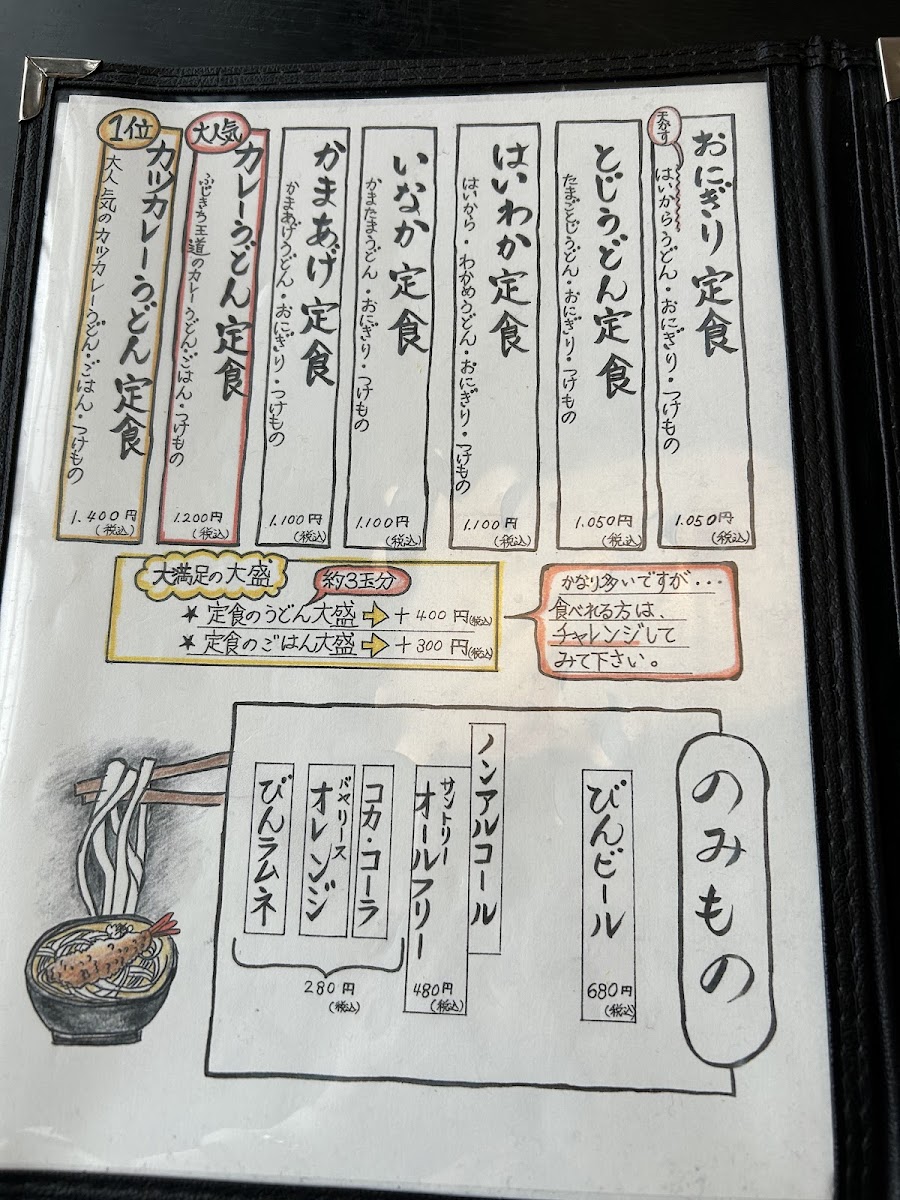 おにぎり定食
天かす
はいからうどん・おにぎり・つけもの
1.050円
(税込)
とじうどん定食
たまごとじうどん・おにぎり・つけもの
1.050円
(税込)
はいわか定食
はいから・わかめうどん・おにぎり・つけもの
1.100円
(税込)
いなか定食
かまたまうどん・おにぎり・つけもの
1.100円
(税込)
かまあげ定食
かまあげうどん・おにぎり・つけもの
1.100円
(税込)
大人気
カレーうどん定食
ふじきち王道のカレーうどん・ごはん・つけもの
1.200円
(税込)
1位
カツカレーうどん定食
大人気のカツカレーうどん・ごはん・つけもの
1.400円
(税込)
大満足の大盛
約3玉分
★定食のうどん大盛⇨+400円(税込)
★定食のごはん大盛⇨+300円(税込)
かなり多いですが・・・
食べれる方は、
チャレンジして
みて下さい。
のみもの
びんビール
680円
(税込)
ノンアルコール
サントリー
オールフリー
480円
(税込)
コカ・コーラ
バヤリース
オレンジ
びんラムネ
280円
(税込)